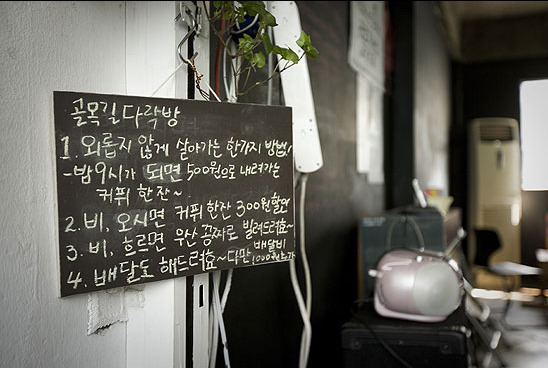 골목길 다락방
1. 외롭지 않게 살아가는 한가지 방법!
-밤9시가 되면 500원으로 내려가는
커퓌 한잔~
2. 비, 오시면 커퓌 한잔 300원 할인
3. 비, 흐르면 우산 공짜로 빌려드려효~
4. 배달도 해드려효~ 다만 배달비
1000원 추가